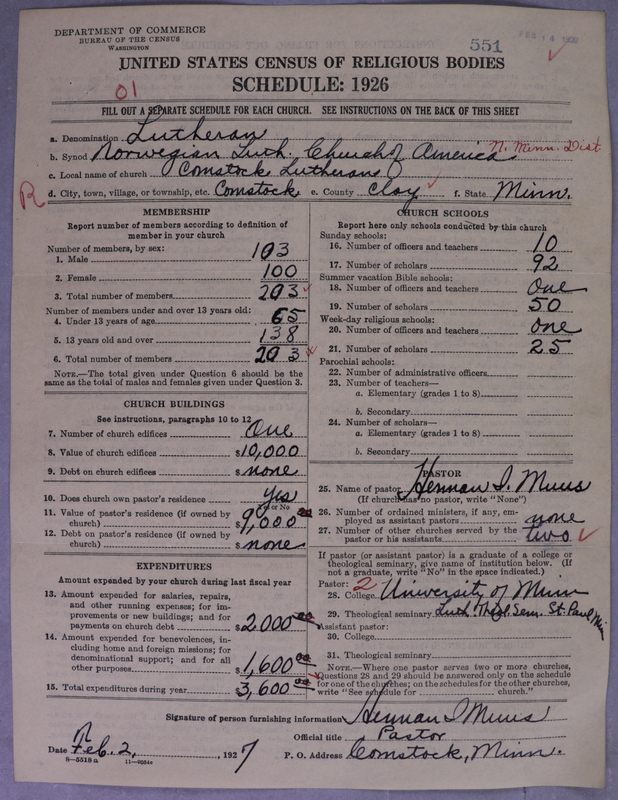 DEPARTMENT OF COMMERCE
BUREAU OF THE CENSUS
WASHINGTON
551
FEB 14
UNITED STATES CENSUS OF RELIGIOUS BODIES
SCHEDULE: 1926
01
FILL OUT A SEPARATE SCHEDULE FOR EACH CHURCH. SEE INSTRUCTIONS ON THE BACK OF THIS SHEET
a. Denomination Lutheran
b. Synod Norwegian Luth. Church of America N. Minn. Dist
c. Local name of church Comstock Lutheran
R d. City, town, village, or township, etc. Comstock e. County Clay f. State Minn.
MEMBERSHIP
Report number of members according to definition of
member in your church
Number of members, by sex:
1. Male 103
2. Female 100
3. Total number of members 203
Number of members under and over 13 years old:
4. Under 13 years of age 65
5. 13 years old and over 138
6. Total number of members 203
NOTE.—The total given under Question 6 should be
same as the total of males and females given under Question 3.
CHURCH BUILDINGS
See instructions, paragraphs 10 to 12
7. Number of church edifices One
8. Value of church edifices $10,000
9. Debt on church edifices $none
10. Does church own pastor's residence Yes
Yes or No
11. Value of pastor's residence (if owned by
church) $9,000 00
12. Debt on pastor's residence (if owned by
church) $none
EXPENDITURES
Amount expended by your church during last fiscal year
13. Amount expended for salaries, repairs,
and other running expenses; for im-
provements or new buildings; and for
payments on church debt $2,000 00
14. Amount expended for benevolences, in-
cluding home and foreign missions; for
denominational support; and for all
other purposes $1,600 00
15. Total expenditures during year $3,600 00
CHURCH SCHOOLS
Report here only schools conducted by this church
Sunday schools:
16. Number of officers and teachers 10
17. Number of scholars 92
Summer vacation Bible schools:
18. Number of officers and teachers One
19. Number of scholars 50
Week-day religious schools:
20. Number of officers and teachers one
21. Number of scholars 25
Parochial schools:
22. Number of administrative officers
23. Number of teachers—
a. Elementary (grades 1 to 8)
b. Secondary
24. Number of scholars—
a. Elementary (grades 1 to 8)
b. Secondary
PASTOR
25. Name of pastor Herman I. Muus
(If church has no pastor, write "None")
26. Number of ordained ministers, if any, em-
ployed as assistant pastors none
27. Number of other churches served by the
pastor or his assistants two
If pastor (or assistant pastor) is a graduate of a college or
theological seminary, give name of institution below. (If
not a graduate, write "No" in the space indicated.)
Pastor: 2
28. College University of Minn
29. Theological seminary Luth. Theol. Sem. St. Paul Minn
Assistant pastor:
30. College
31. Theological seminary
NOTE.—Where one pastor serves two or more churches,
Questions 28 and 29 should be answered only on the schedule
for one of the churches; on the schedules for the other churches,
write "See schedule for church."
Signature of person furnishing information Herman I Muus
Official title Pastor
Date Feb. 2, 1927 P. O. Address Comstock, Minn.
8—5518 a